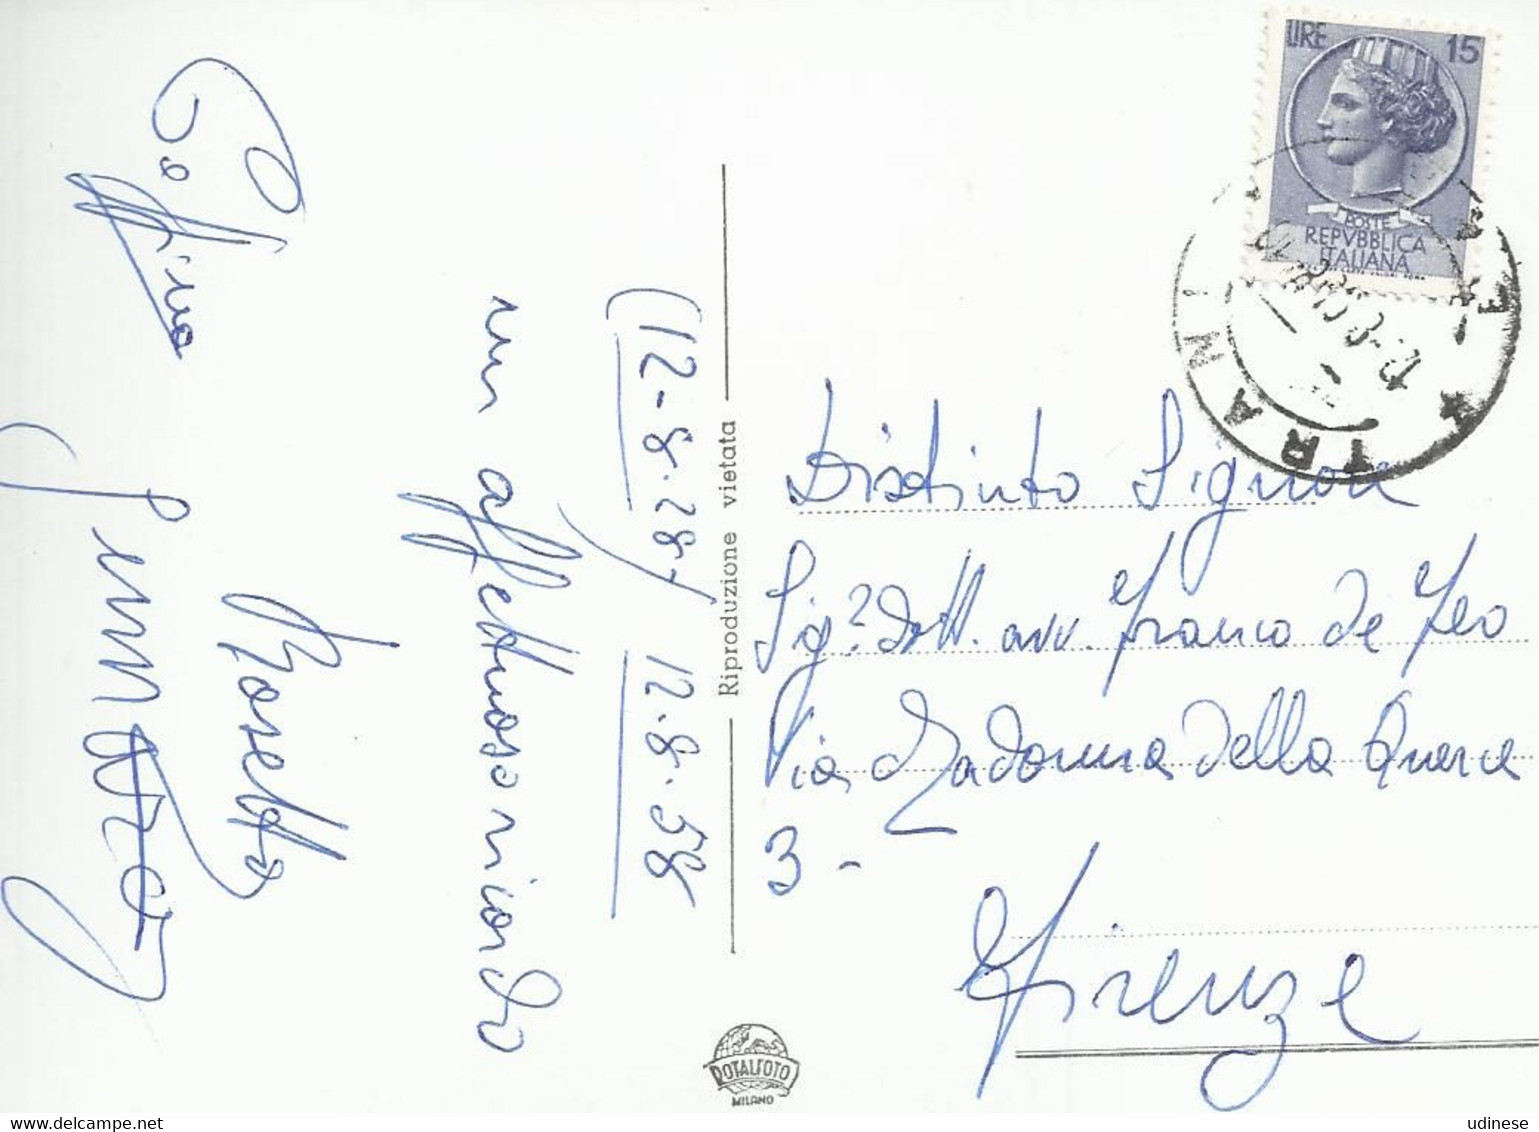 (12-8-28) 12.8.58
un affettuoso ricordo
Rosetta
LIRE 15
POSTE
REPVBBLICA
ITALIANA
TRANI
Riproduzione vietata
Distinto Signor
Sig.r dott. avv. Franco de Feo
Via Madonna della Querce
3-
Firenze
ROTALFOTO
MILANO
delcampe.net
udinese